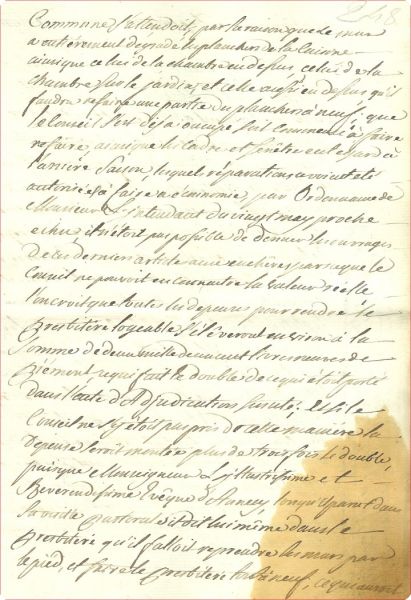 248
Commune s'attendoit, par la raison que le mur
a entièrement degradé les planchers de la Cuisine
ainsi que celui de la chambre en dessus, celui de la
chambre sur le jardin, et celle aussi en dessus qu'il
faudra refaire une partie du planchers à neuf; que
le Conseil s'est déja occupé fait commencé à faire
refaire, ainsi que les Cadre et fenêtre eu egard à
l'arrière saison, lesquels réparations avoient été
autorisées à faire en économie, par Ordonnance de
Monsieur L'intendant du vingt may proche
echu, il n'étoit pas possible de donner les ouvrages
de ces derniers article aux enchères parceque le
Conseil ne pouvoit en connaitre la valeur réelle
l'on croit que toutes les depenses pour rendre le
presbitère logeable s'élèveront environ à la
somme de deux mille neuf cent livres neuves de
piement ce qui fait le double de ce qui étoit porté
dans l'acte d'Adjudication susdté. Et si le
Conseil ne s'y étoit pas pris de cette manière la
depense seroit montée plus de trois fois le double,
puisque Monseigneur L'illustrissime et
Reverendissime Evêque d'Annecy, lorsqu'il parut dans
sa visite pastoral a dit lui même dans le
presbitère qu'il falloit reprendre les murs par
le pied, et faire le presbitère tout à neuf, ce qui auroit